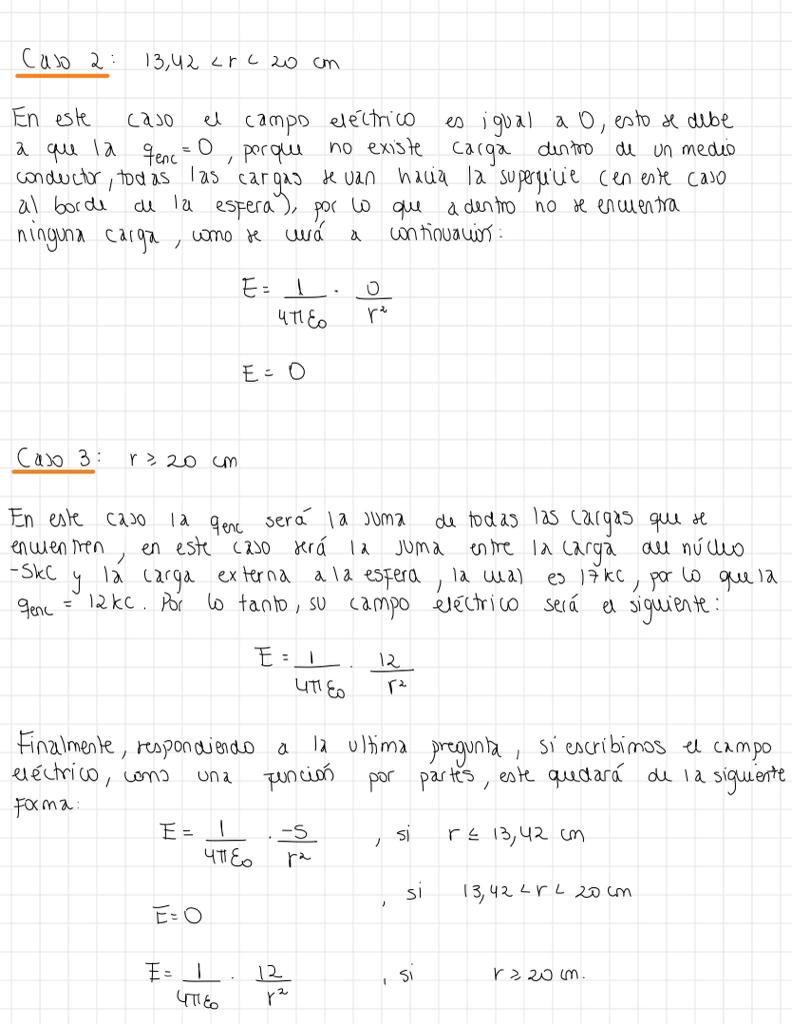 Caso 2: 13,42 < r < 20 cm
En este caso el campo eléctrico es igual a 0, esto se debe
a que la qenc = 0, porque no existe carga dentro de un medio
conductor, todas las cargas se van hacia la superficie (en este caso
al borde de la esfera), por lo que adentro no se encuentra
ninguna carga, como se verá a continuación:
E = 1/4πε₀ · 0/r²
E = 0
Caso 3: r ≥ 20 cm
En este caso la qenc será la suma de todas las cargas que se
encuentren, en este caso será la suma entre la carga del núcleo
-5kC y la carga externa a la esfera, la cual es 17kC, por lo que la
qenc = 12kC. Por lo tanto, su campo eléctrico será el siguiente:
E = 1/4πε₀ · 12/r²
Finalmente, respondiendo a la ultima pregunta, si escribimos el campo
eléctrico, como una función por partes, este quedará de la siguiente
forma:
E = 1/4πε₀ · -5/r² , si r ≤ 13,42 cm
E = 0 , si 13,42 < r < 20 cm
E = 1/4πε₀ · 12/r² , si r ≥ 20 cm.